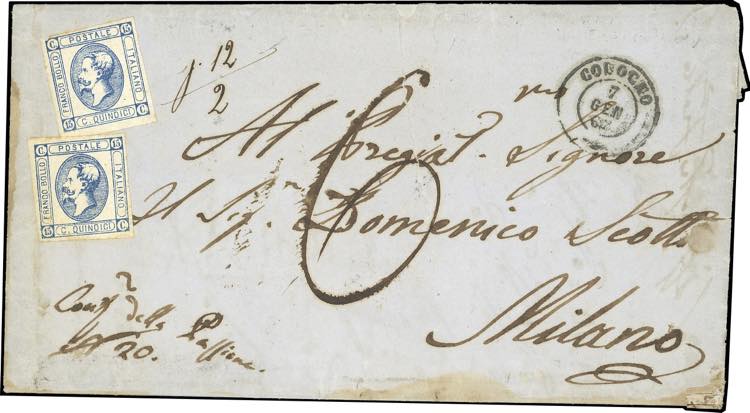 C. POSTALE 15
FRANCO BOLLO
ITALIANO
15 C. QUINDICI C.
C. POSTALE 15
FRANCO BOLLO
ITALIANO
15 C. QUINDICI C.
12
2
CODOGNO
7
GEN
6
Al Pregiat.mo Signore
Il Sig.r Domenico Scotti
Milano
della Passione.
N 20.